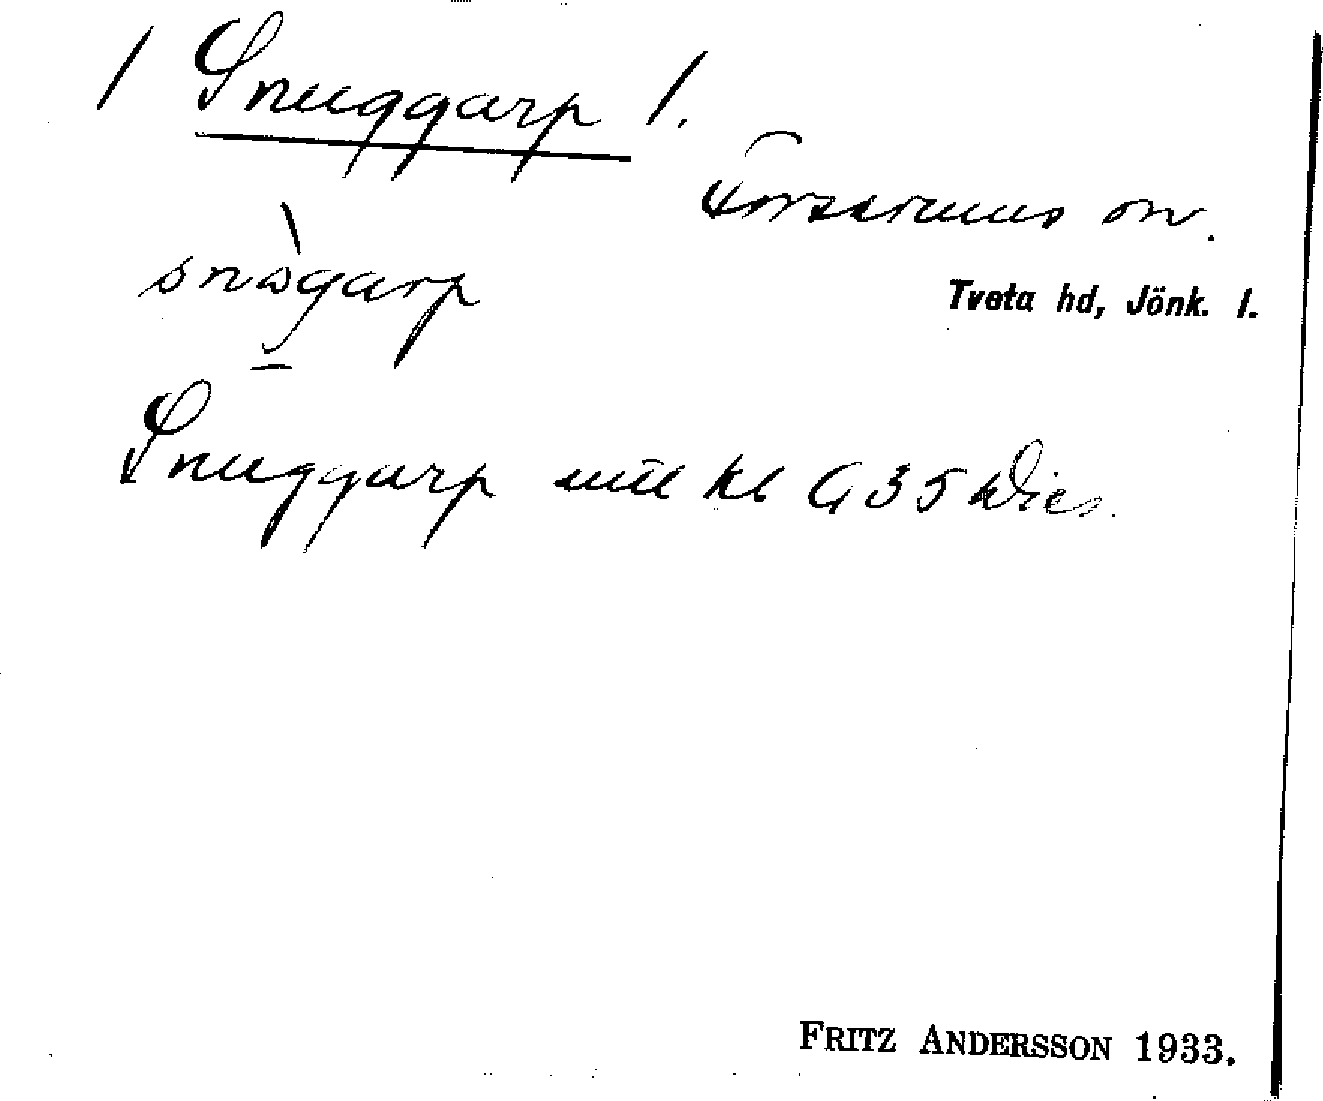 / Snuggarp /.
Forserums sn.
snωgarp
Tveta hd, Jönk. l.
Snuggarp utt kl G 35 Dics.
FRITZ ANDERSSON 1933.